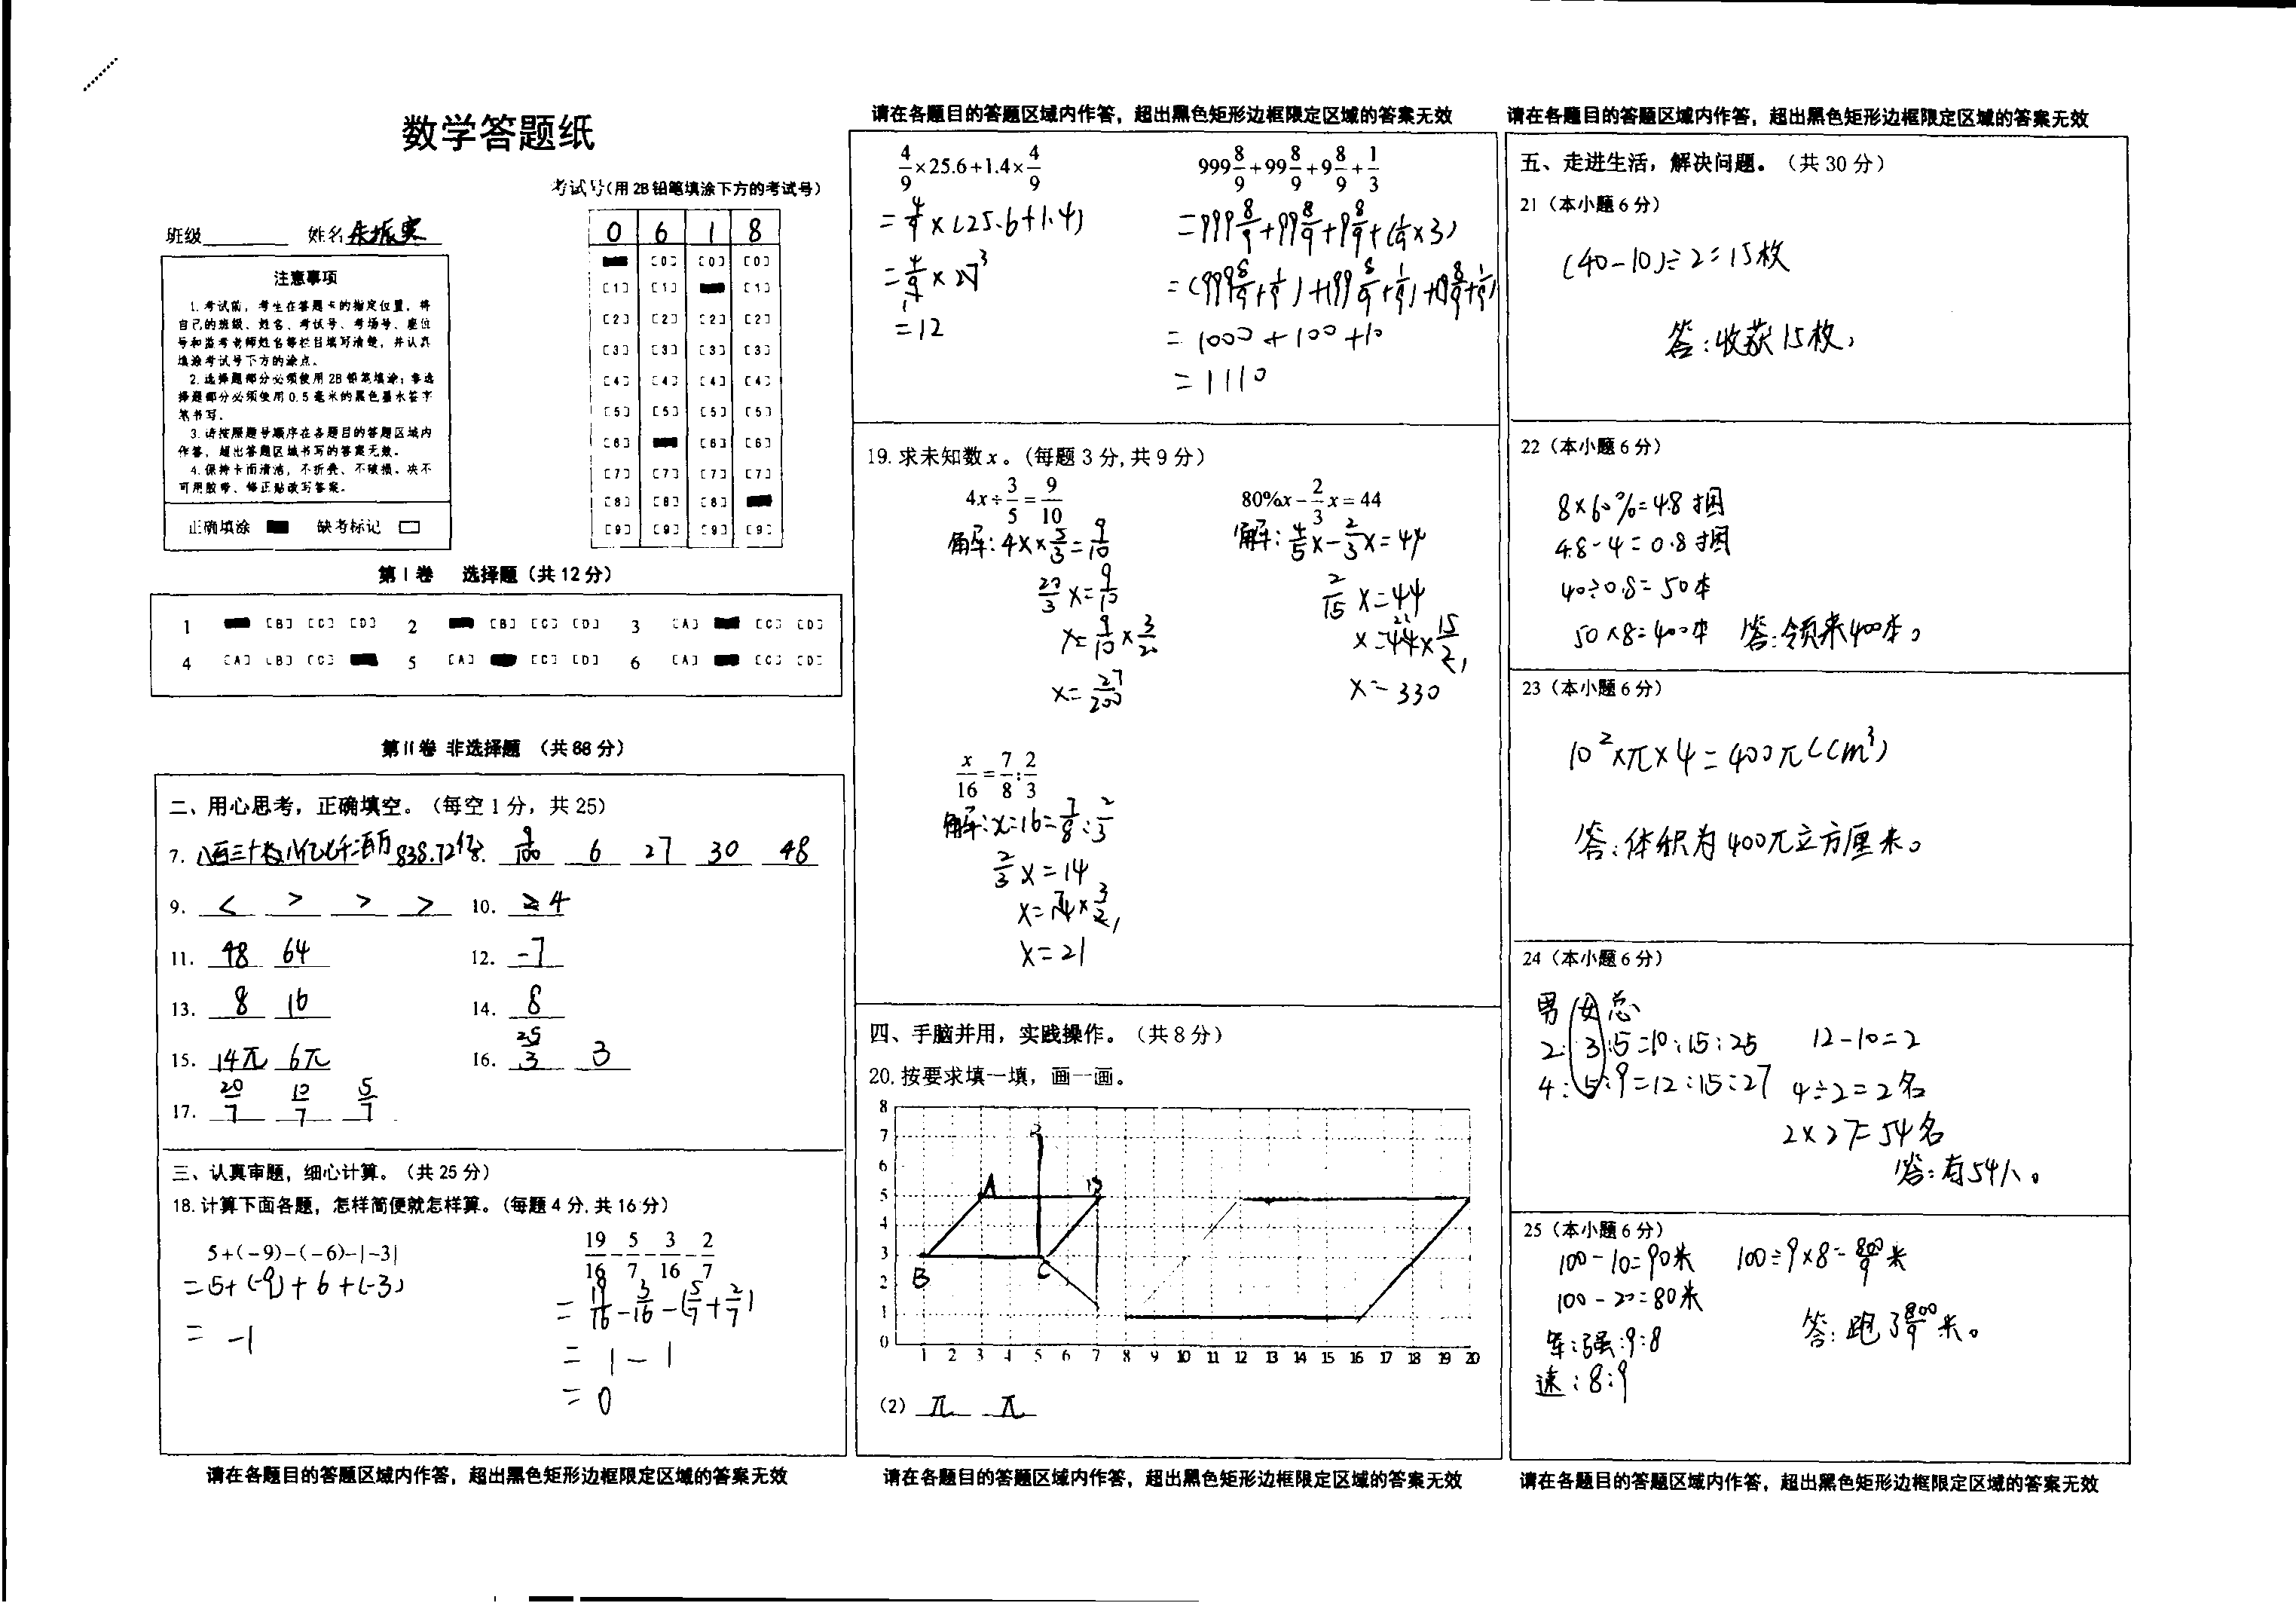 数学答题纸
考试号(用 2B 铅笔填涂下方的考试号)
班级 姓名
0 6 1 8
注意事项
1. 考试前，考生在答题卡的指定位置，将
自己的班级、姓名、考试号、考场号、座位
号和监考老师姓名等栏目填写清楚，并认真
填涂考试号下方的涂点。
2. 选择题部分必须使用 2B 铅笔填涂；非选
择题部分必须使用 0.5 毫米的黑色墨水签字
笔书写。
3. 请按照题号顺序在各题目的答题区域内
作答，超出答题区域书写的答案无效。
4. 保持卡面清洁，不折叠、不破损。决不
可用胶带、修正贴改写答案。
正确填涂 缺考标记
[0] [0] [0]
[1] [1] [1]
[2] [2] [2] [2]
[3] [3] [3] [3]
[4] [4] [4] [4]
[5] [5] [5] [5]
[6] [6] [6]
[7] [7] [7] [7]
[8] [8] [8]
[9] [9] [9] [9]
第 I 卷 选择题（共 12 分）
1 [B] [C] [D] 2 [B] [C] [D] 3 [A] [C] [D]
4 [A] [B] [C] 5 [A] [C] [D] 6 [A] [C] [D]
第 II 卷 非选择题 （共 88 分）
二、用心思考，正确填空。（每空 1 分，共 25）
7. 838.72亿 8. 9/100 6 27 30 48
9. < > > > 10. 4
11. 48 64 12. -7
13. 8 16 14. 8
15. 14π 6π 16. 25/3 3
17. 20/7 10/7 5/7
三、认真审题，细心计算。（共 25 分）
18. 计算下面各题，怎样简便就怎样算。（每题 4 分, 共 16 分）
5+(-9)-(-6)-|-3|
=5+(-9)+6+(-3)
= -1
19/16 - 5/7 - 3/16 - 2/7
= 19/16 - 3/16 - (5/7 + 2/7)
= 1 - 1
= 0
请在各题目的答题区域内作答，超出黑色矩形边框限定区域的答案无效
请在各题目的答题区域内作答，超出黑色矩形边框限定区域的答案无效
4/9×25.6+1.4×4/9
= 4/9×(25.6+1.4)
= 4/9×27 3
1
=12
999 8/9+99 8/9+9 8/9+1/3
=999 8/9+99 8/9+9 8/9+(1/9×3)
=(999 8/9+1/9)+(99 8/9+1/9)+(9 8/9+1/9)
= 1000+100+10
= 1110
19. 求未知数 x 。（每题 3 分, 共 9 分）
4x÷3/5=9/10
解: 4x×5/3=9/10
20/3 x=9/10
x=9/10×3/20
x=27/200
80%x-2/3x=44
解: 4/5x-2/3x=44
2/15 x=44
x=44×15/2
x=330
x/16=7/8:2/3
解: x:16=7/8:2/3
2/3 x=14
x=14×3/2
x=21
四、手脑并用，实践操作。（共 8 分）
20. 按要求填一填，画一画。
8
7
6
5
4
3
2
1
0
A
B
C
1 2 3 4 5 6 7 8 9 10 11 12 13 14 15 16 17 18 19 20
(2) π π
请在各题目的答题区域内作答，超出黑色矩形边框限定区域的答案无效
请在各题目的答题区域内作答，超出黑色矩形边框限定区域的答案无效
五、走进生活，解决问题。（共 30 分）
21（本小题 6 分）
(40-10)÷2=15枚
答:收获15枚,
22（本小题 6 分）
8×60%=4.8捆
4.8-4=0.8捆
40÷0.8=50本
50×8=400本 答:领来400本。
23（本小题 6 分）
10²×π×4=400π(cm³)
答:体积为400π立方厘米。
24（本小题 6 分）
男 女 总
2:3:5=10:15:25 12-10=2
4:5:9=12:15:27 4÷2=2名
2×27=54名
答:有54人。
25（本小题 6 分）
100-10=90米 100÷9×8=800/9米
100-20=80米
军:强:9:8
速:8:9
答:跑了800/9米。
请在各题目的答题区域内作答，超出黑色矩形边框限定区域的答案无效